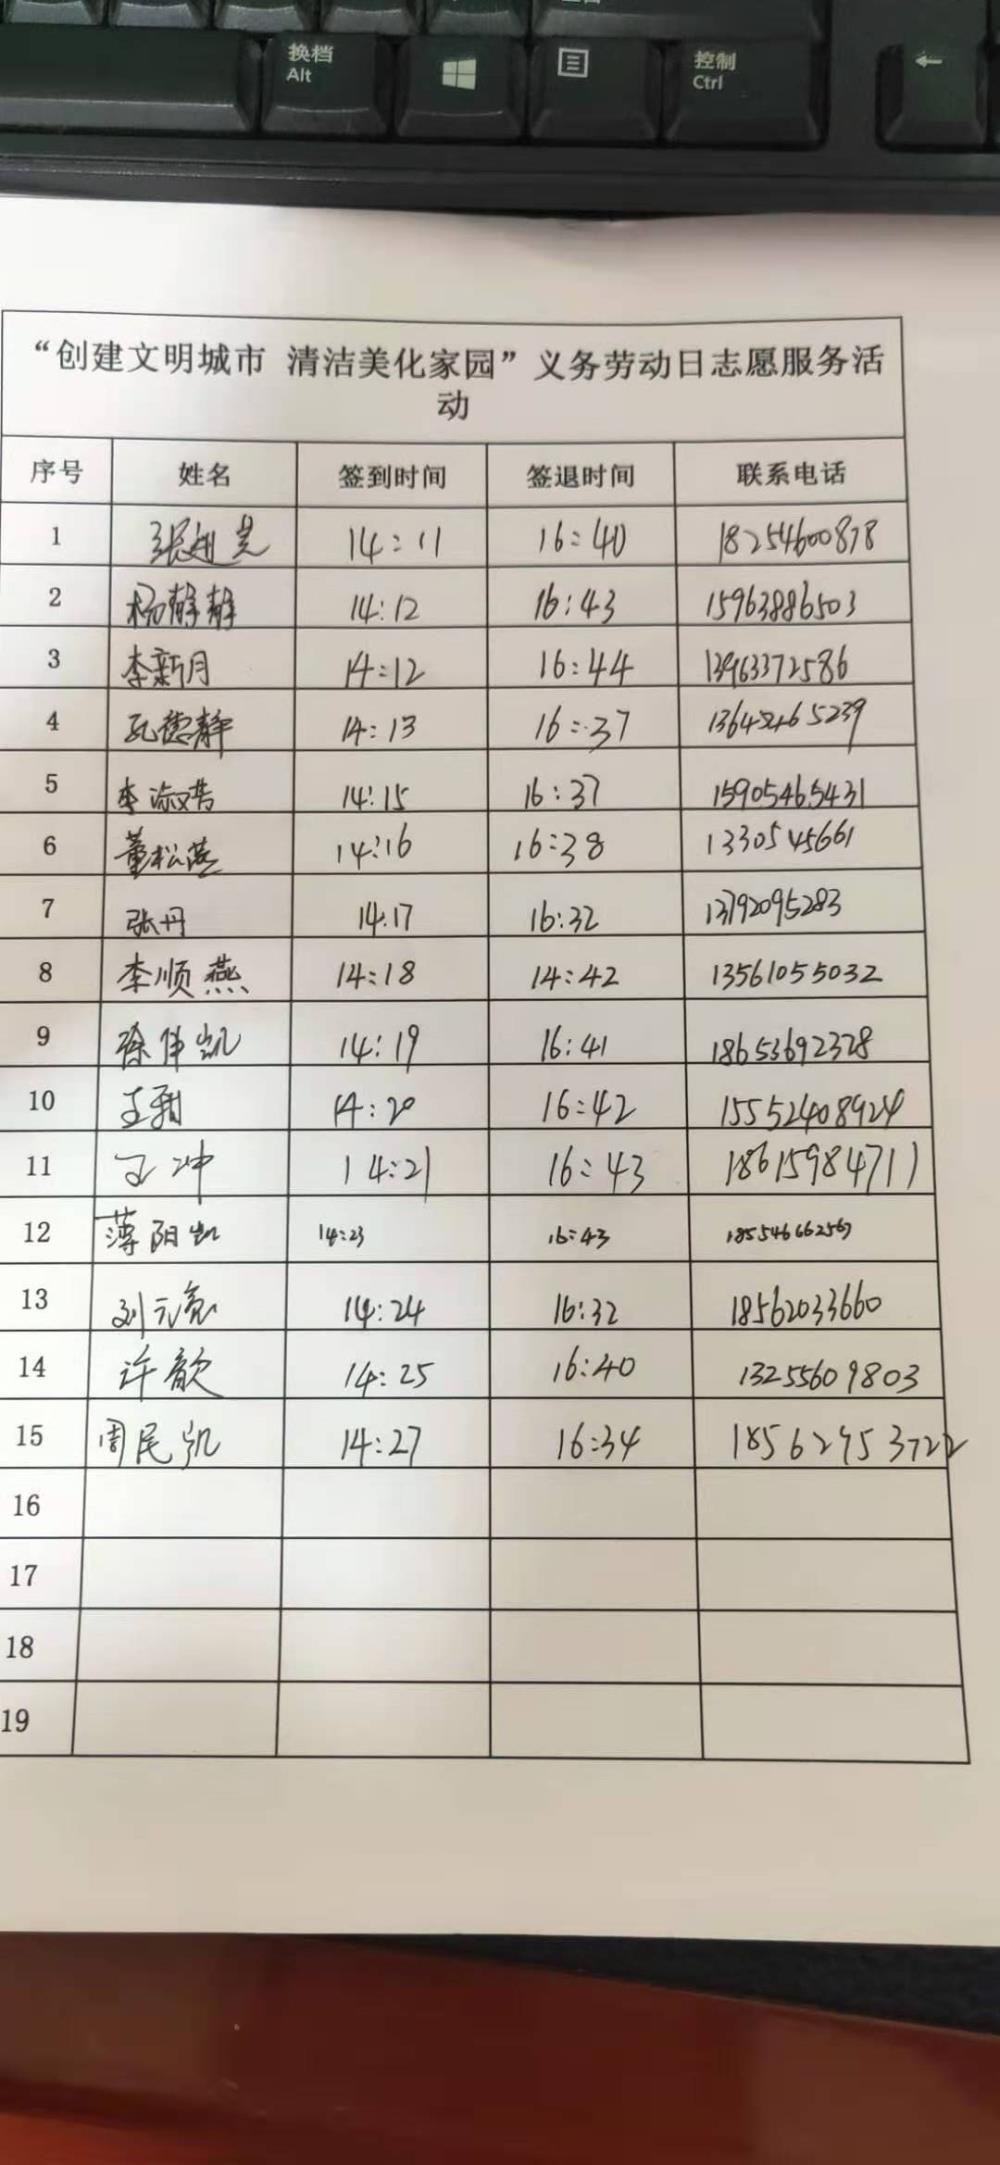 换档
Alt
控制
Ctrl
“创建文明城市 清洁美化家园”义务劳动日志愿服务活
动
序号 姓名 签到时间 签退时间 联系电话
1 14:11 16:40 18254600878
2 杨静静 14:12 16:43 15963886503
3 李新月 14:12 16:44 13963372586
4 孔德静 14:13 16:37
5 14:15 16:37 15905465431
6 董松燕 14:16 16:38 1330545661
7 张丹 14:17 16:32 13792095283
8 李顺燕 14:18 14:42 13561055032
9 徐伟凯 14:19 16:41 18653692328
10 14:20 16:42 15552408924
11 王冲 14:21 16:43 18615984711
12 薄阳凯 14:23 16:43 185546662569
13 刘元亮 14:24 16:32 18562033660
14 许歆 14:25 16:40 13255609803
15 周民凯 14:27 16:34 18562953722
16
17
18
19